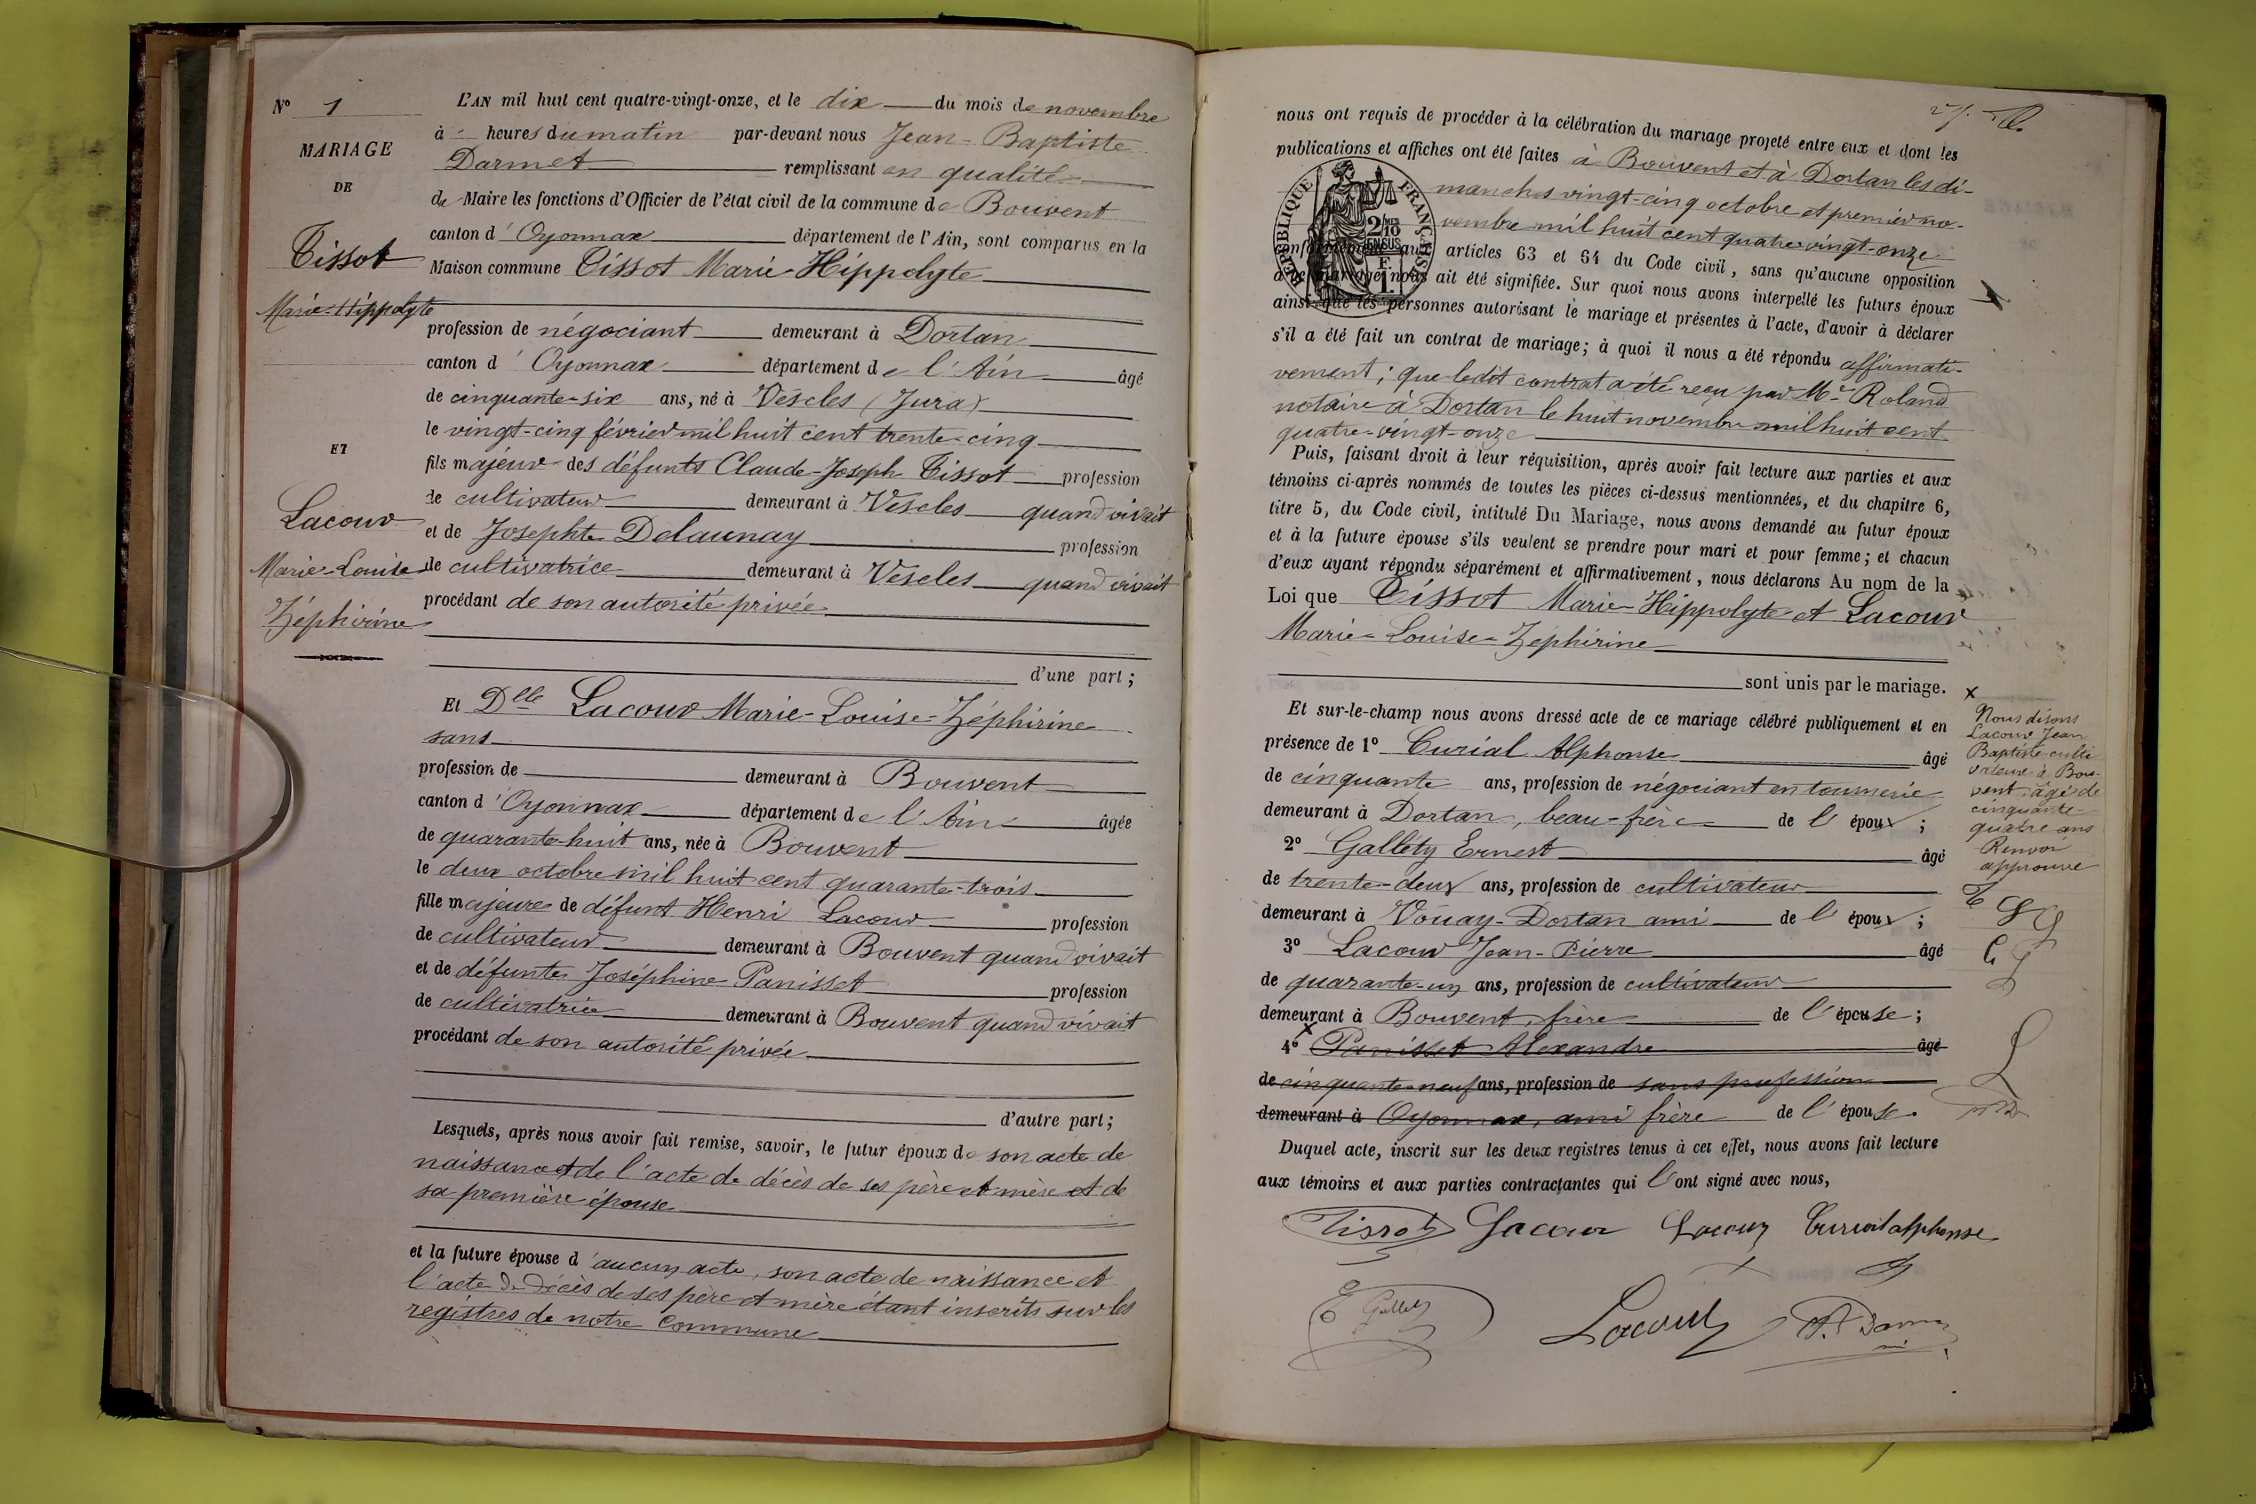 N° 1
MARIAGE
DE
Tissot
Marie-Hippolyte
ET
Lacour
Marie-Louise
Zéphirine
L'AN mil huit cent quatre-vingt-onze, et le dix du mois de novembre
à heures du matin par-devant nous Jean-Baptiste
Darmet remplissant en qualité
de Maire les fonctions d'Officier de l'état civil de la commune de Bouvent
canton d'Oyonnax département de l'Ain, sont comparus en la
Maison commune Tissot Marie-Hippolyte
profession de négociant demeurant à Dortan
canton d'Oyonnax département de l'Ain âgé
de cinquante-six ans, né à Vescles (Jura)
le vingt-cinq février mil huit cent trente-cinq
fils majeur des défunts Claude-Joseph Tissot profession
de cultivateur demeurant à Vescles quand vivait
et de Josephte Delaunay profession
de cultivatrice demeurant à Vescles quand vivait
procédant de son autorité privée
d'une part ;
Et Dlle Lacour Marie-Louise-Zéphirine
sans
profession de demeurant à Bouvent
canton d'Oyonnax département de l'Ain âgée
de quarante-huit ans, née à Bouvent
le deux octobre mil huit cent quarante-trois
fille majeure de défunt Henri Lacour profession
de cultivateur demeurant à Bouvent quand vivait
et de défunte Joséphine Panisset profession
de cultivatrice demeurant à Bouvent quand vivait
procédant de son autorité privée
d'autre part ;
Lesquels, après nous avoir fait remise, savoir, le futur époux de son acte de
naissance et de l'acte de décès de ses père et mère et de
sa première épouse
et la future épouse d'aucun acte, son acte de naissance et
l'acte de décès de ses père et mère étant inscrits sur les
registres de notre commune
nous ont requis de procéder à la célébration du mariage projeté entre eux et dont les
publications et affiches ont été faites à Bouvent et à Dortan les di-
manches vingt-cinq octobre et premier no-
vembre mil huit cent quatre-vingt-onze
RÉPUBLIQUE FRANÇAISE
2/10 EN SUS
1 F
conformément aux articles 63 et 64 du Code civil, sans qu'aucune opposition
à ce mariage nous ait été signifiée. Sur quoi nous avons interpellé les futurs époux
ainsi que les personnes autorisant le mariage et présentes à l'acte, d'avoir à déclarer
s'il a été fait un contrat de mariage ; à quoi il nous a été répondu affirmati-
vement ; que ledit contrat a été reçu par Me Roland
notaire à Dortan le huit novembre mil huit cent
quatre-vingt-onze
Puis, faisant droit à leur réquisition, après avoir fait lecture aux parties et aux
témoins ci-après nommés de toutes les pièces ci-dessus mentionnées, et du chapitre 6,
titre 5, du Code civil, intitulé Du Mariage, nous avons demandé au futur époux
et à la future épouse s'ils veulent se prendre pour mari et pour femme ; et chacun
d'eux ayant répondu séparément et affirmativement, nous déclarons Au nom de la
Loi que Tissot Marie-Hippolyte et Lacour
Marie-Louise-Zéphirine
sont unis par le mariage.
Et sur-le-champ nous avons dressé acte de ce mariage célébré publiquement et en
présence de 1° Curial Alphonse âgé
de cinquante ans, profession de négociant en tournerie
demeurant à Dortan, beau-frère de l'époux ;
2° Galléty Ernest âgé
de trente-deux ans, profession de cultivateur
demeurant à Vouay-Dortan ami de l'époux ;
3° Lacour Jean-Pierre âgé
de quarante-un ans, profession de cultivateur
demeurant à Bouvent, frère de l'épouse ;
x
4° Panisset Alexandre âgé
de cinquante-neuf ans, profession de sans profession
demeurant à Oyonnax, ami frère de l'épouse.
Duquel acte, inscrit sur les deux registres tenus à cet effet, nous avons fait lecture
aux témoins et aux parties contractantes qui l'ont signé avec nous,
Tissot Lacour Lacour Curial alphonse
E Gallety Lacour Darmet
x
Nous disons
Lacour Jean
Baptiste culti
vateur à Bou-
vent âgé de
cinquante-
quatre ans
Renvoi
approuvé